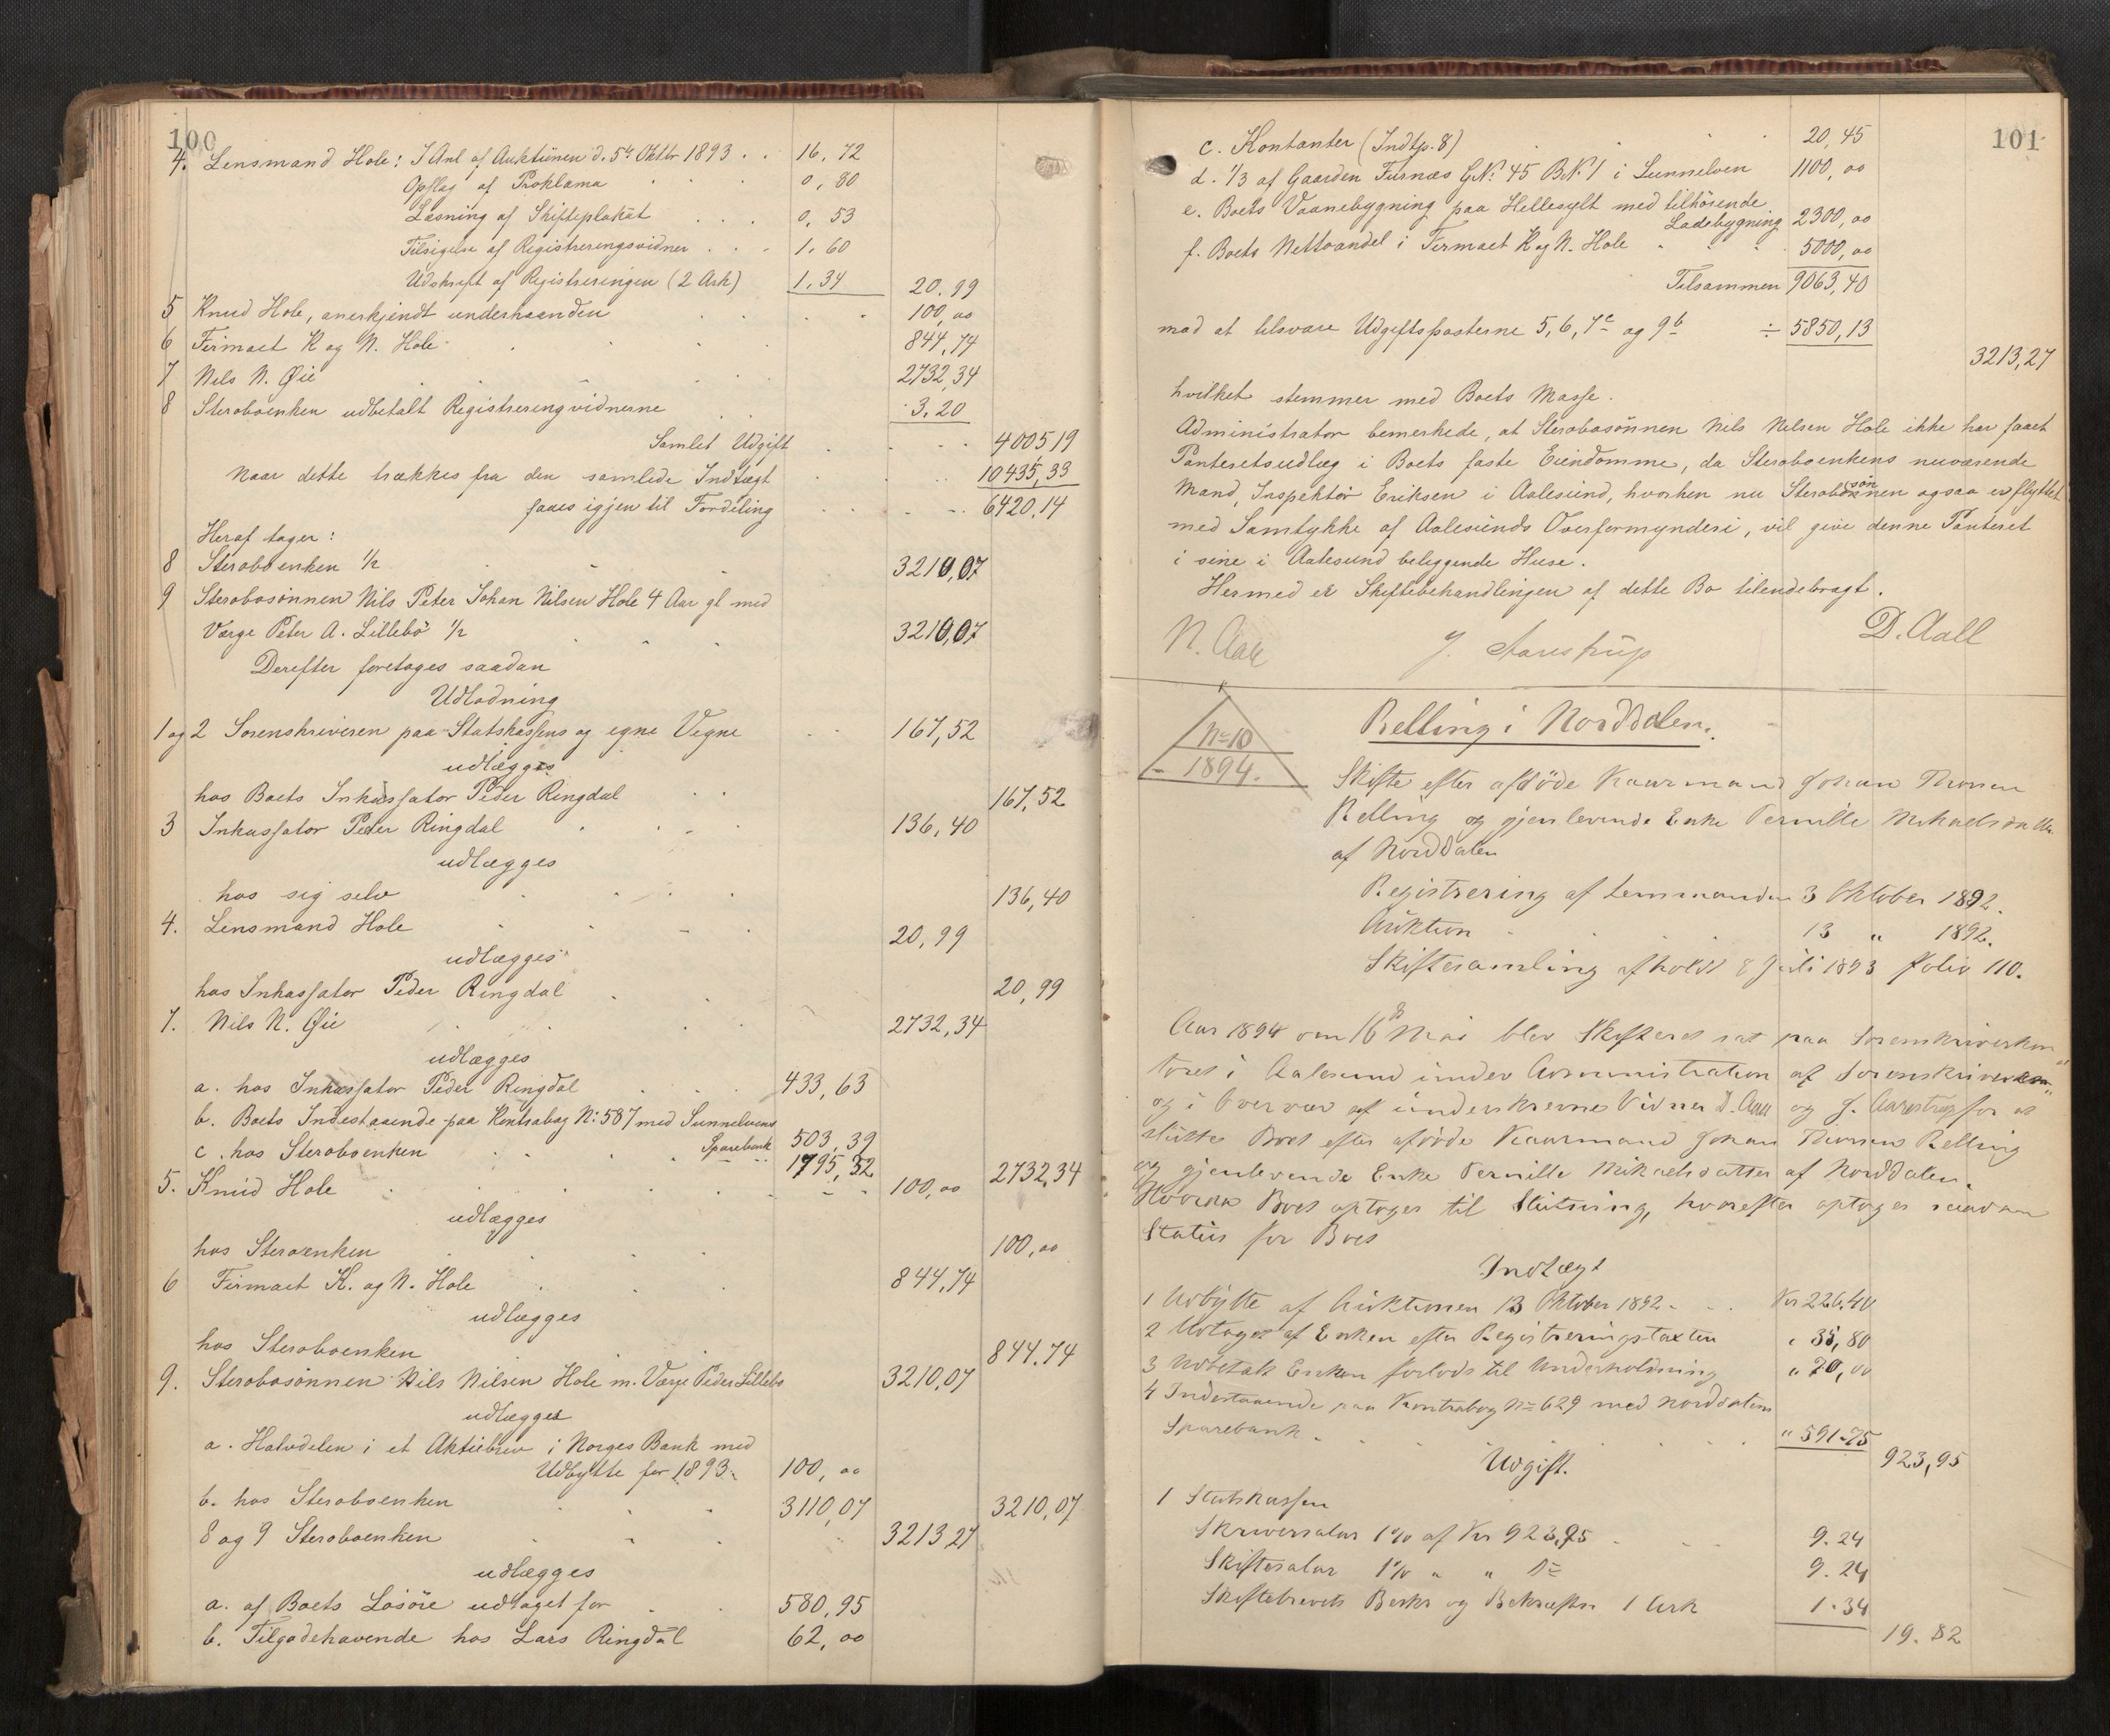 100
4. Lensmand Hole: I Anl af Auktionen d. 5te Oktbr 1893 . . 16,72
Opslag af Proklama 0,80
Læsning af Skifteplakat 0,53
Tilsigelse af Registreringsvidner 1,60
Udskrift af Registreringen (2 Ark) 1,34 20.99
5 Knud Hole, anerkjendt underhaanden 100,00
6 Firmaet K og N. Hole 844,74
7 Nils N. Øie 2732,34
8 Sterboenken udbetalt Registreringvidnerne 3.20
Samlet Udgift 4005,19
Naar dette trækkes fra den samlede Indtægt 10435,33
faaes igjen til Fordeling 6420.14
Heraf tager:
8 Sterboenken 1/2 3210,07
9 Sterbosønnen Nils Peter Johan Nilsen Hole 4 Aar gl med
Værge Peter A. Lillebö 1/2 3210,07
Derefter foretages saadan
Udlodning
1 og 2 Sorenskriveren paa Statskassens og egne Vegne 167,52
udlægges
hos Boets Inkassator Peder Ringdal 167,52
3 Inkassator Peder Ringdal 136,40
udlægges
hos sig selv 136,40
4. Lensmand Hole 20,99
udlægges
hos Inkassator Peder Ringdal 20,99
7. Nils N. Øie 2732,34
udlægges
a. hos Inkassator Peder Ringdal 433,63
b. Boets Indestaaende paa Kontrabog No 587 med Sunnelvens
Sparebank 503,39
c. hos Sterboenken 1795,32 2732,34
5. Knud Hole 100,00
udlægges
hos Sterboenken 100,00
6 Firmaet K. og N. Hole 844,74
udlægges
hos Sterboenken 844.74
9. Sterbosönnen Nils Nilsen Hole m. Værge Peder Lillebö 3210,07
udlægges
a. Halvdelen i et Aktiebrev i Norges Bank med
Udbytte for 1893. 100,00
b. hos Sterboenken 3110,07 3210,07
8 og 9 Sterboenken 3213,27
udlægges
a. af Boets Lösöre udtaget for 580,95
b. Tilgodehavende hos Lars Ringdal 62,00
101
c. Kontanter (Indtp. 8) 20,45
d. 1/3 af Gaarden Furnæs G.No. 45 B.N. 1 i Sunnelven 1100,00
e. Boets Vaanebygning paa Hellesylt med tilhörende
Ladebygning 2300,00
f. Boets Nettoandel i Firmaet K og N. Hole 5000,00
Tilsammen 9063,40
mod at tilsvare Udgiftsposterne 5, 6, 7c og 9b ÷ 5850,13
3213,27
hvilket stemmer med Boets Masse.
Administrator bemerkede, at Sterbosönnen Nils Nilsen Hole ikke har faaet
Panteretsudlæg i Boets faste Eiendomme, da Sterboenkens nuværende
Mand, Inspektör Eriksen i Aalesund, hvorhen nu Sterbosönnen ogsaa er flyttet
med Samtykke af Aalesunds Overformynderi, vil give denne Panteret
i sine i Aalesund beliggende Huse.
Hermed er Skiftebehandlingen af dette Bo tilendebragt.
D. Aall
N. Aall J. Aarestrup
No 10
1894.
Relling i Norddalen.
Skifte efter afdöde Kaarmand Johan Thorsen
Relling og gjenlevende Enke Pernille Mikaelsdatter
af Norddalen
Registrering af Lensmanden 3 Oktober 1892.
Auktion 13 " 1892.
Skiftesamling afholdt 8 Juli 1893 folio 110.
Aar 1894 den 16d Mai blev Skifteret sat paa Sorenskriverkon"
toret i Aalesund under Administration af Sorenskriveren
og i Overvær af underskrevne Vidner D. Aall og J. Aarestrup for at
slutte Boet efter afdöde Kaarmand Johan Thorsen Relling
og gjenlevende Enke Pernille Mikaelsdatter af Norddalen.
Boet optoges til Slutning, hvorefter optoges saadan
Status for Boet
Indtægt
1 Udbytte af Auktionen 13 Oktober 1892 Kr 226.40
2 Udtaget af Enken efter Registreringstaxten " 35,80
3 Udbetalt Enken forlods til Underholdning " 70,00
4 Indestaaende paa Kontrabog No 629 med Norddalens
Sparebank " 591.75 923,95
Udgift.
1 Statskassen
Skriversalær 1% af Kr 923,95 9.24
Skiftesalær 1% " " Do 9.24
Skiftebrevets Beskr og Bekræftn 1 Ark 1.34
19.82